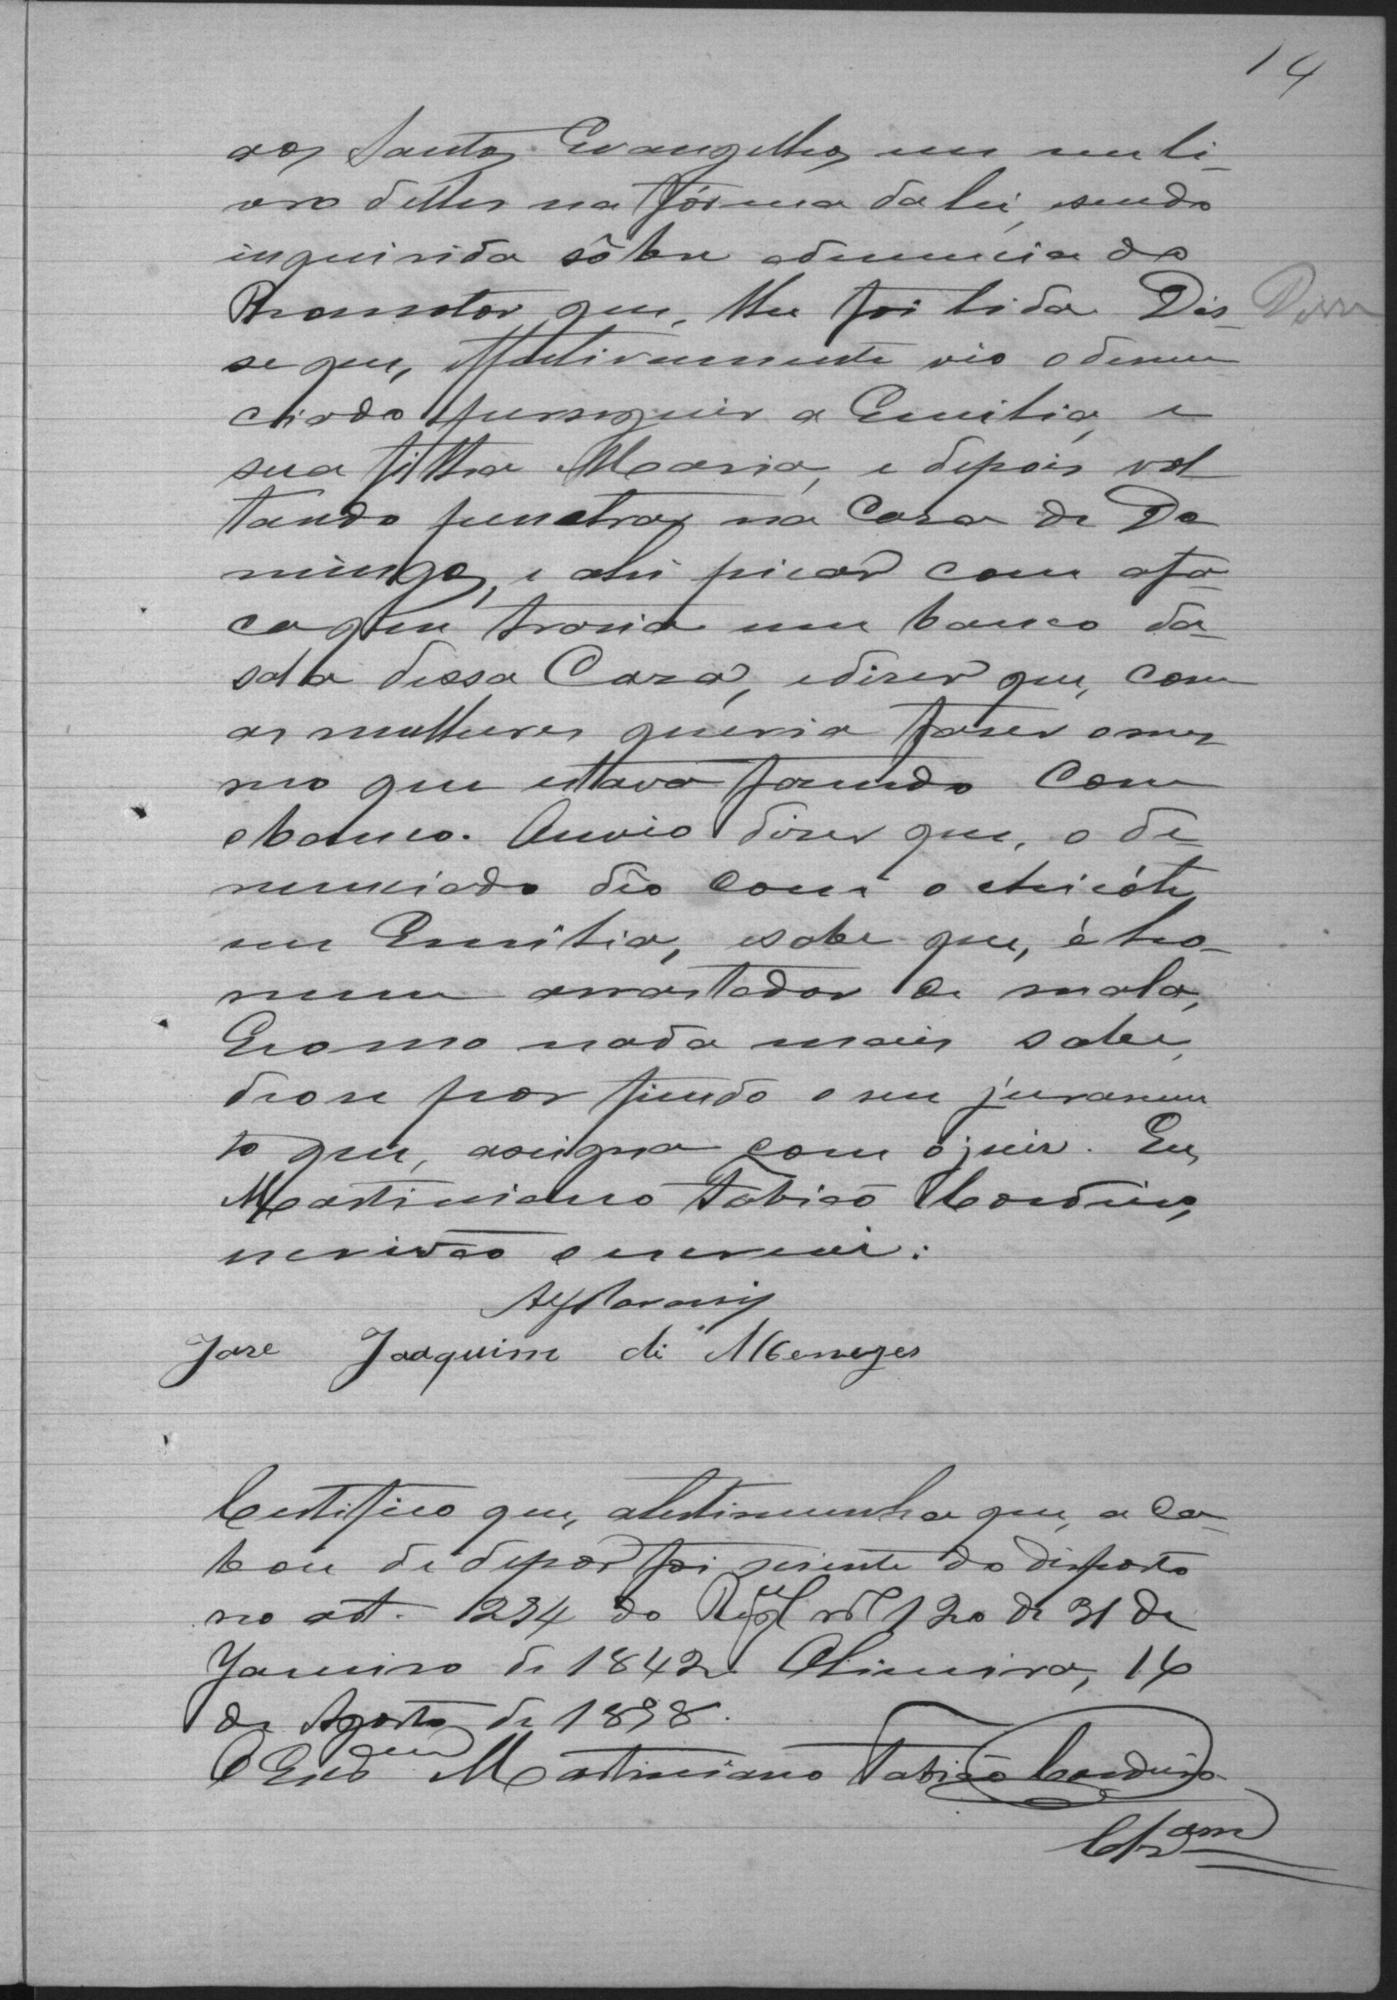 14
aos Santos Evangelhos em um li-
vro delles na fórma da lei, esendo
inquirida sôbre adenuncia do
Promotor que, lhe foi lida. Dis-
Disse
se que, effectivamente vio o denun
ciado perseguir a Emilia, e
sua filha Maria, e depois vol
tando penetrar na casa de Do
mingos, e ahi picar com afa-
ca que trasia um banco da
sala dessa Casa, edizer que, com
as mulheres queria faser o mes
mo que estava fasendo com
obanco. Ouvio dizer que, o de-
nunciado déo com o chicóte
em Emilia, esabe que, é ho-
mem de mala,
Ecomo nada mais sabe,
deose por findo o seu juramen
to que, assigna com o juiz. Eu,
Martiniano Fabião Cordeiro,
escrivão o escrevi:
José Joaquim de Menezes
Certifico que, atestimunha que, a ca-
bou de depor foi sciente do disposto
no art. 294 do Regul nº 120 de 31 de
Janeiro de 1842. 14
de Agosto de 1898.
O Escram Martiniano Fabião Cordeiro